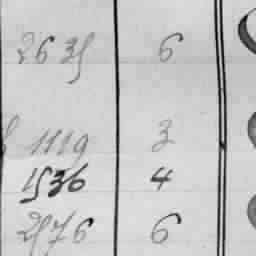 2635 6
1119 3
1536 4
2576 6